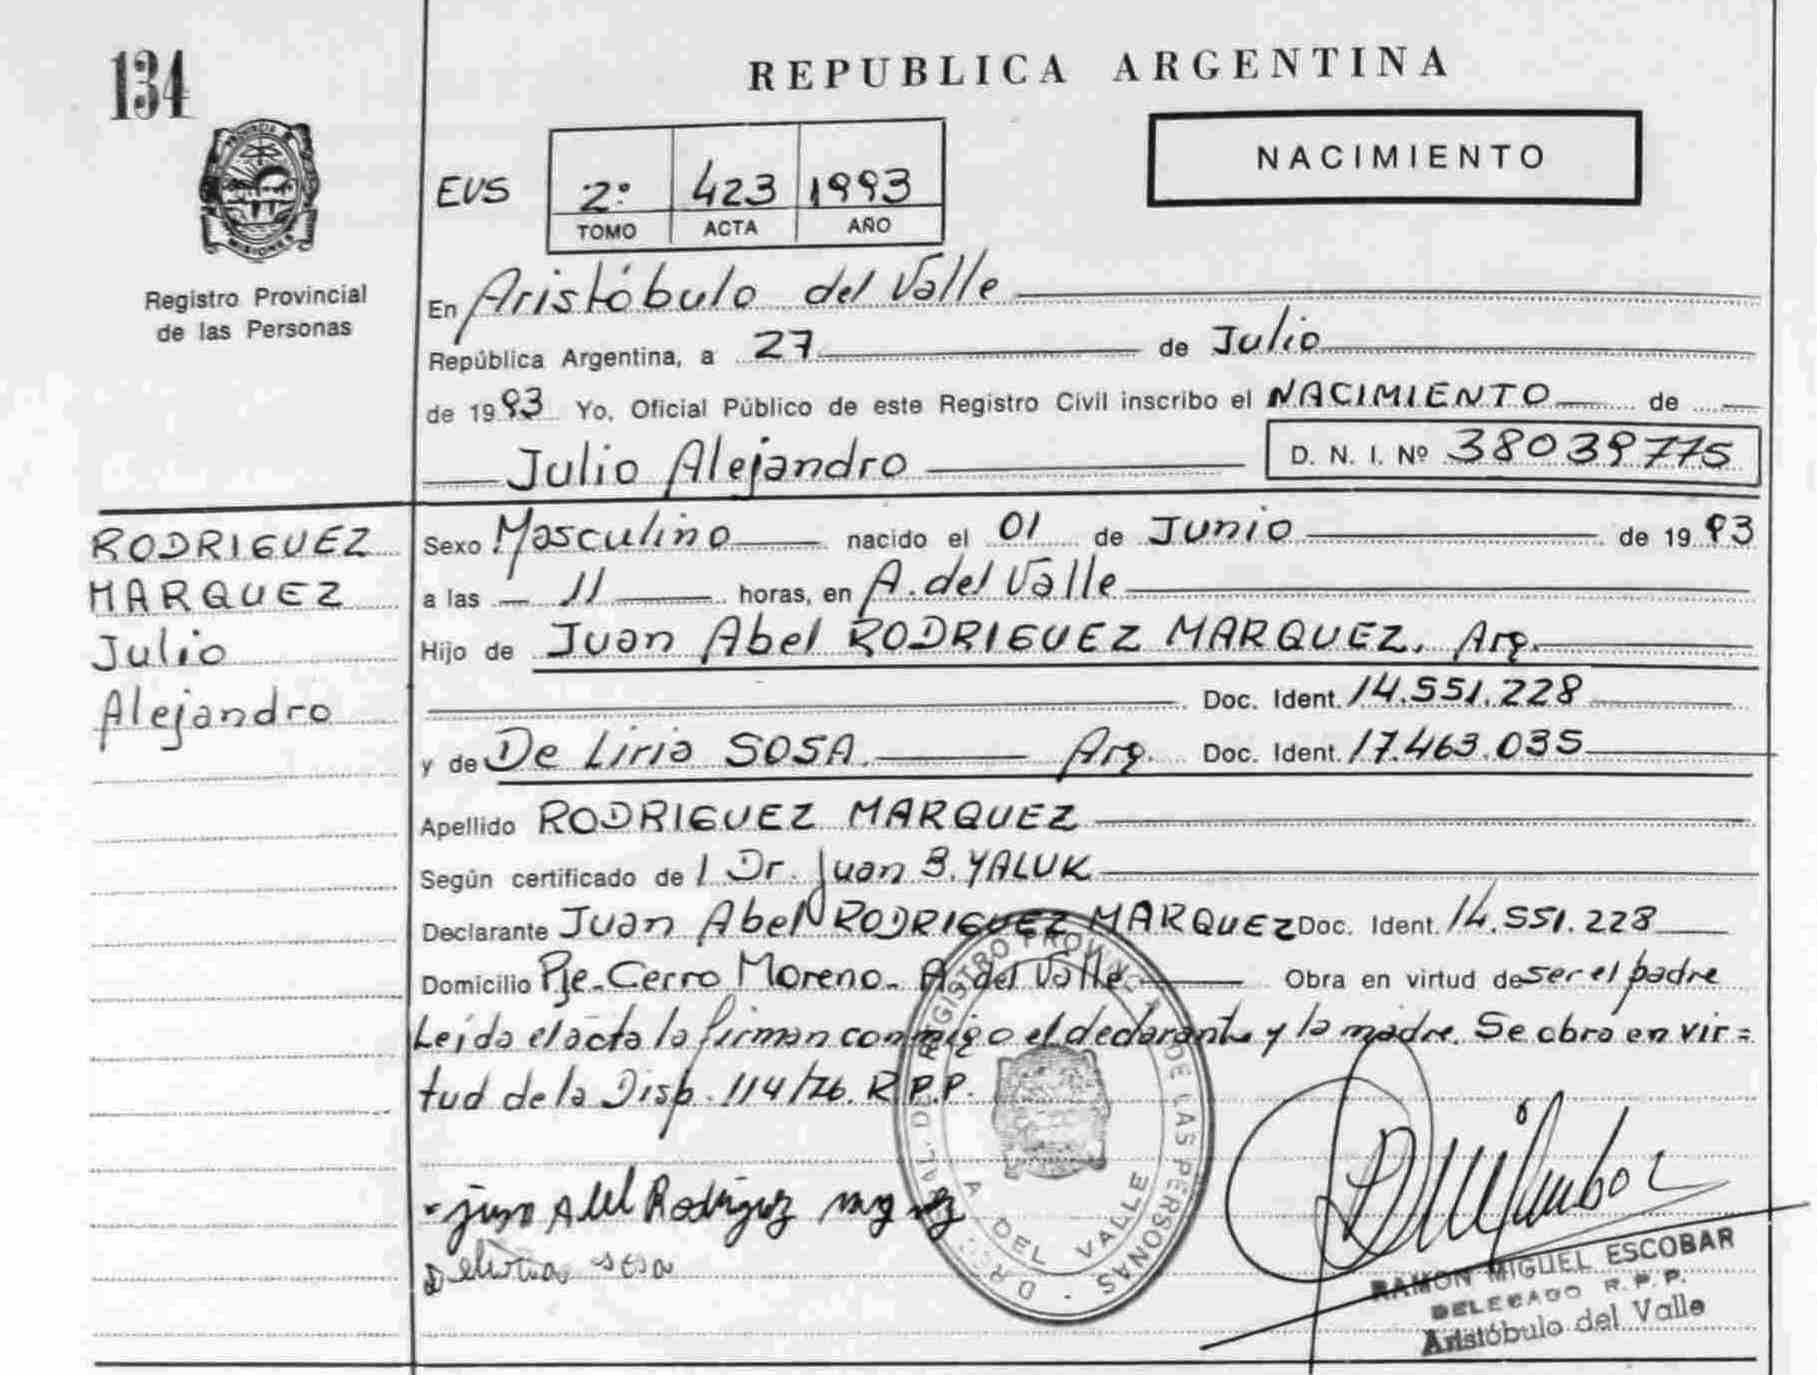 134
REPUBLICA ARGENTINA
NACIMIENTO
PROVINCIA DE MISIONES
Registro Provincial
de las Personas
EVS
2º 423 1993
TOMO ACTA AÑO
En Aristóbulo del Valle
República Argentina, a 27 de Julio
de 1993 Yo, Oficial Público de este Registro Civil inscribo el NACIMIENTO de
Julio Alejandro D. N. I. Nº 38039775
RODRIGUEZ
MARQUEZ
Julio
Alejandro
Sexo Masculino nacido el 01 de Junio de 1993
a las 11 horas, en A. del Valle
Hijo de Juan Abel RODRIGUEZ MARQUEZ. Arg.
Doc. Ident. 14.551.228
y de De Liria SOSA. Arg. Doc. Ident. 17.463.035
Apellido RODRIGUEZ MARQUEZ
Según certificado de l Dr. Juan B. YALUK
Declarante Juan Abel RODRIGUEZ MARQUEZ Doc. Ident. 14.551.228
Domicilio Pje. Cerro Moreno - A. del Valle Obra en virtud de ser el padre
Leída el acta la firman conmigo el declarante y la madre. Se obra en vir=
tud de la Disp. 114/76. R.P.P.
Juan Abel Rodriguez
Delivia sosa
REGISTRO PROVINCIAL DE LAS PERSONAS
A. DEL VALLE
RAMON MIGUEL ESCOBAR
DELEGADO R.P.P.
Aristóbulo del Valle